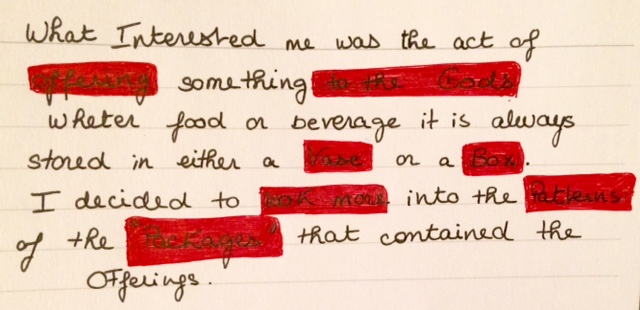 What Interested me was the act of
offering something to the Gods
Wheter food or beverage it is always
stored in either a Vase or a Box.
I decided to look more into the Patterns
of the "Packages" that contained the
Offerings.